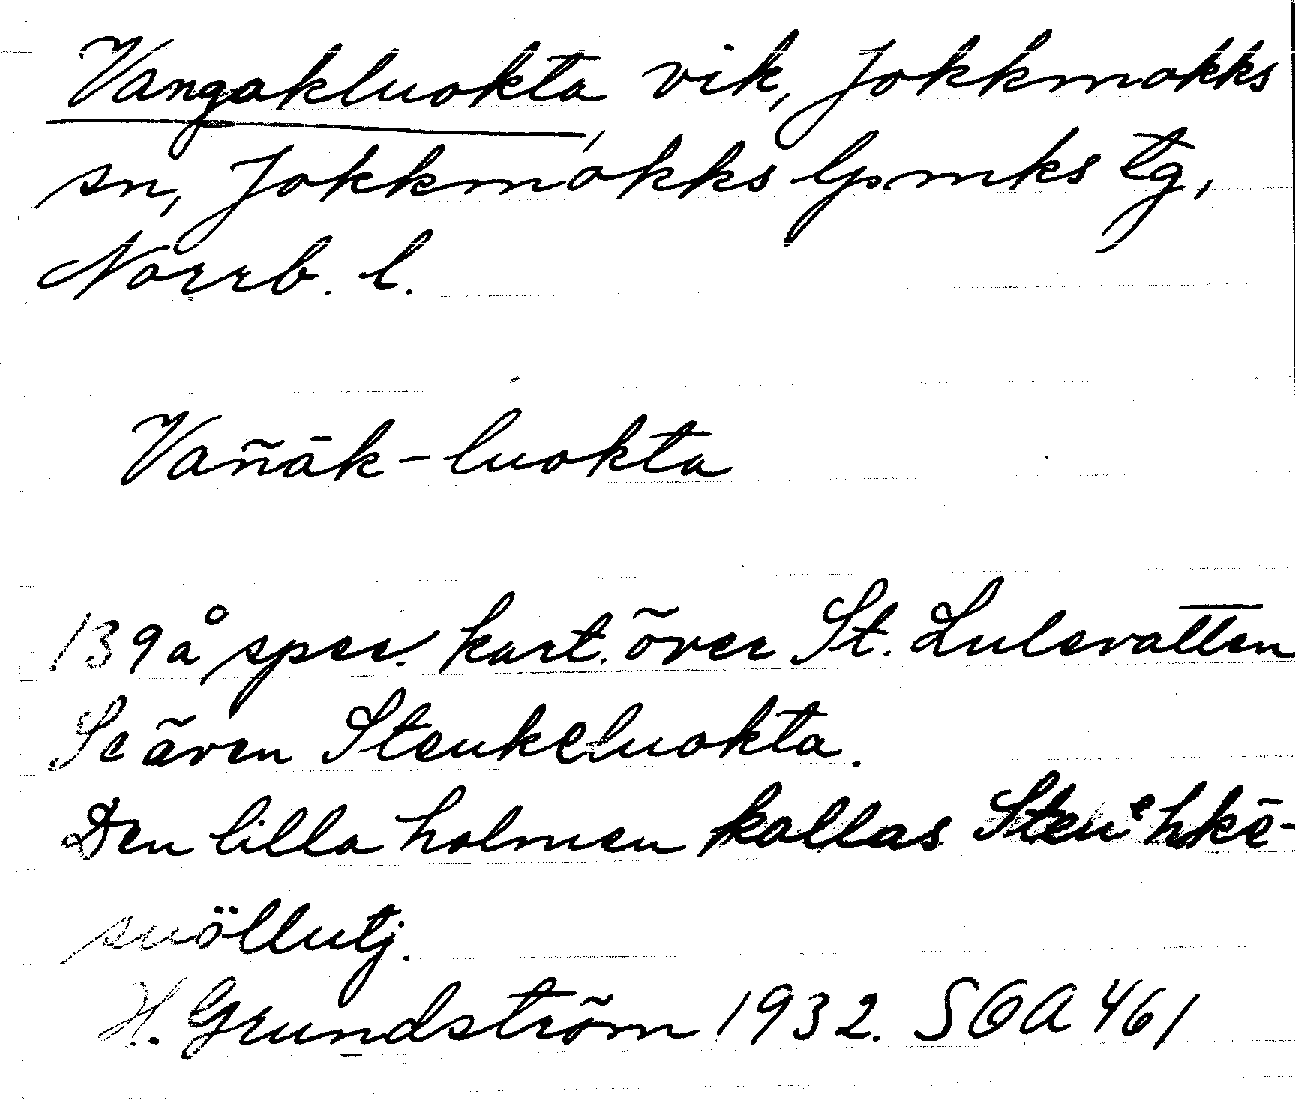 Vangakluokta vik, Jokkmokks
sn, Jokkmokks lpmks tg,
Norrb. l.
Vañāk-luokta
139 å spec. kart. över St. Lulevatten
Se även Steukeluokta.
Den lilla holmen kallas Steuᵉhkē-
suöllutj.
H. Grundström 1932. SOA 461